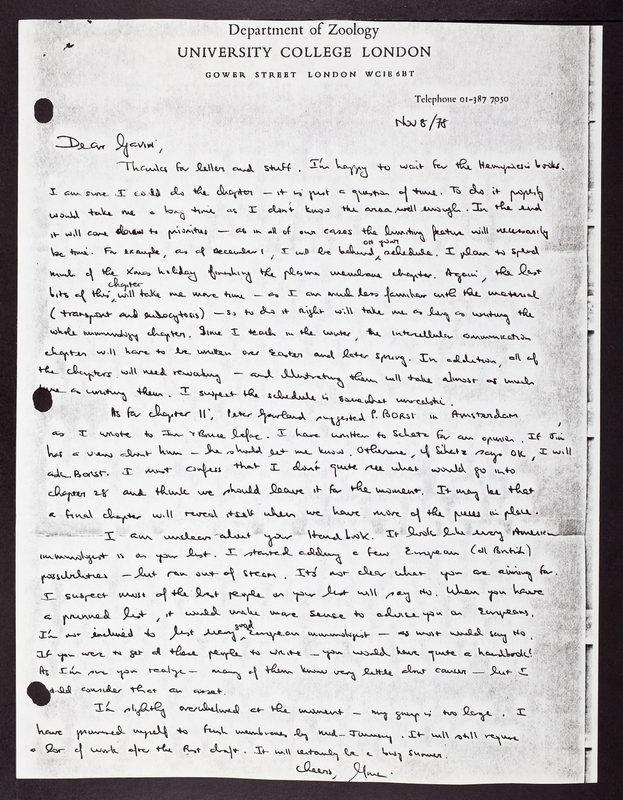 Department of Zoology
UNIVERSITY COLLEGE LONDON
GOWER STREET LONDON WC1E 6BT
Telephone 01-387 7050
Nov 8/78
Dear Gavin,
Thanks for letter and stuff. I'm happy to wait for the books.
I am sure I could do the chapter – it is just a question of time. To do it properly
would take me a long time as I don't know the area well enough. In the end
it will come down to priorities – as in all of our cases the limiting feature will necessarily
be time. For example, as of December 1, I will be behind on your schedule. I plan to spend
much of the Xmas holiday finishing the plasma membrane chapter. Again, the last
bits of this chapter will take me more time – as I am much less familiar with the material
(transport and endocytosis) – so to do it right will take me as long as writing the
whole immunology chapter. Since I teach in the winter, the intercellular communication
chapter will have to be written over Easter and later spring. In addition, all of
the chapters will need reworking – and illustrating them will take almost as much
time as writing them. I suspect the schedule is somewhat unrealistic.
As for chapter 11, Peter Garland suggested P. BORST in Amsterdam,
as I wrote to Jim & Bruce before. I have written to Schatz for an opinion. If Jim
has a view about him – he should let me know. Otherwise, if Schatz says OK, I will
ask BORST. I must confess that I don't quite see what would go into
chapter 28 and think we should leave it for the moment. It may be that
a final chapter will reveal itself when we have more of the pieces in place.
I am unclear about your Handbook. It looks like every American
immunologist is on your list. I started adding a few European (all British)
possibilities – but ran out of steam. It's not clear what you are aiming for.
I suspect most of the best people on your list will say No. When you have
a pruned list, it would make more sense to advise you on Europeans.
I'm not inclined to list every good European immunologist – as most would say No.
If you were to get all those people to write – you would have quite a handbook!
As I'm sure you realize – many of them know very little about cancer – but I
would consider that an asset.
I'm slightly overwhelmed at the moment – my group is too large. I
have promised myself to finish membranes by mid-January. It will still require
a lot of work after the first draft. It will certainly be a busy summer.
Cheers,